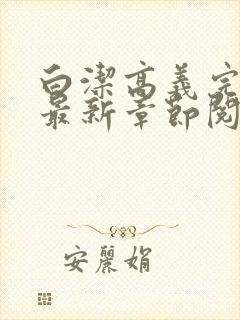 白潔高義完
最新章節閱
安麗娟